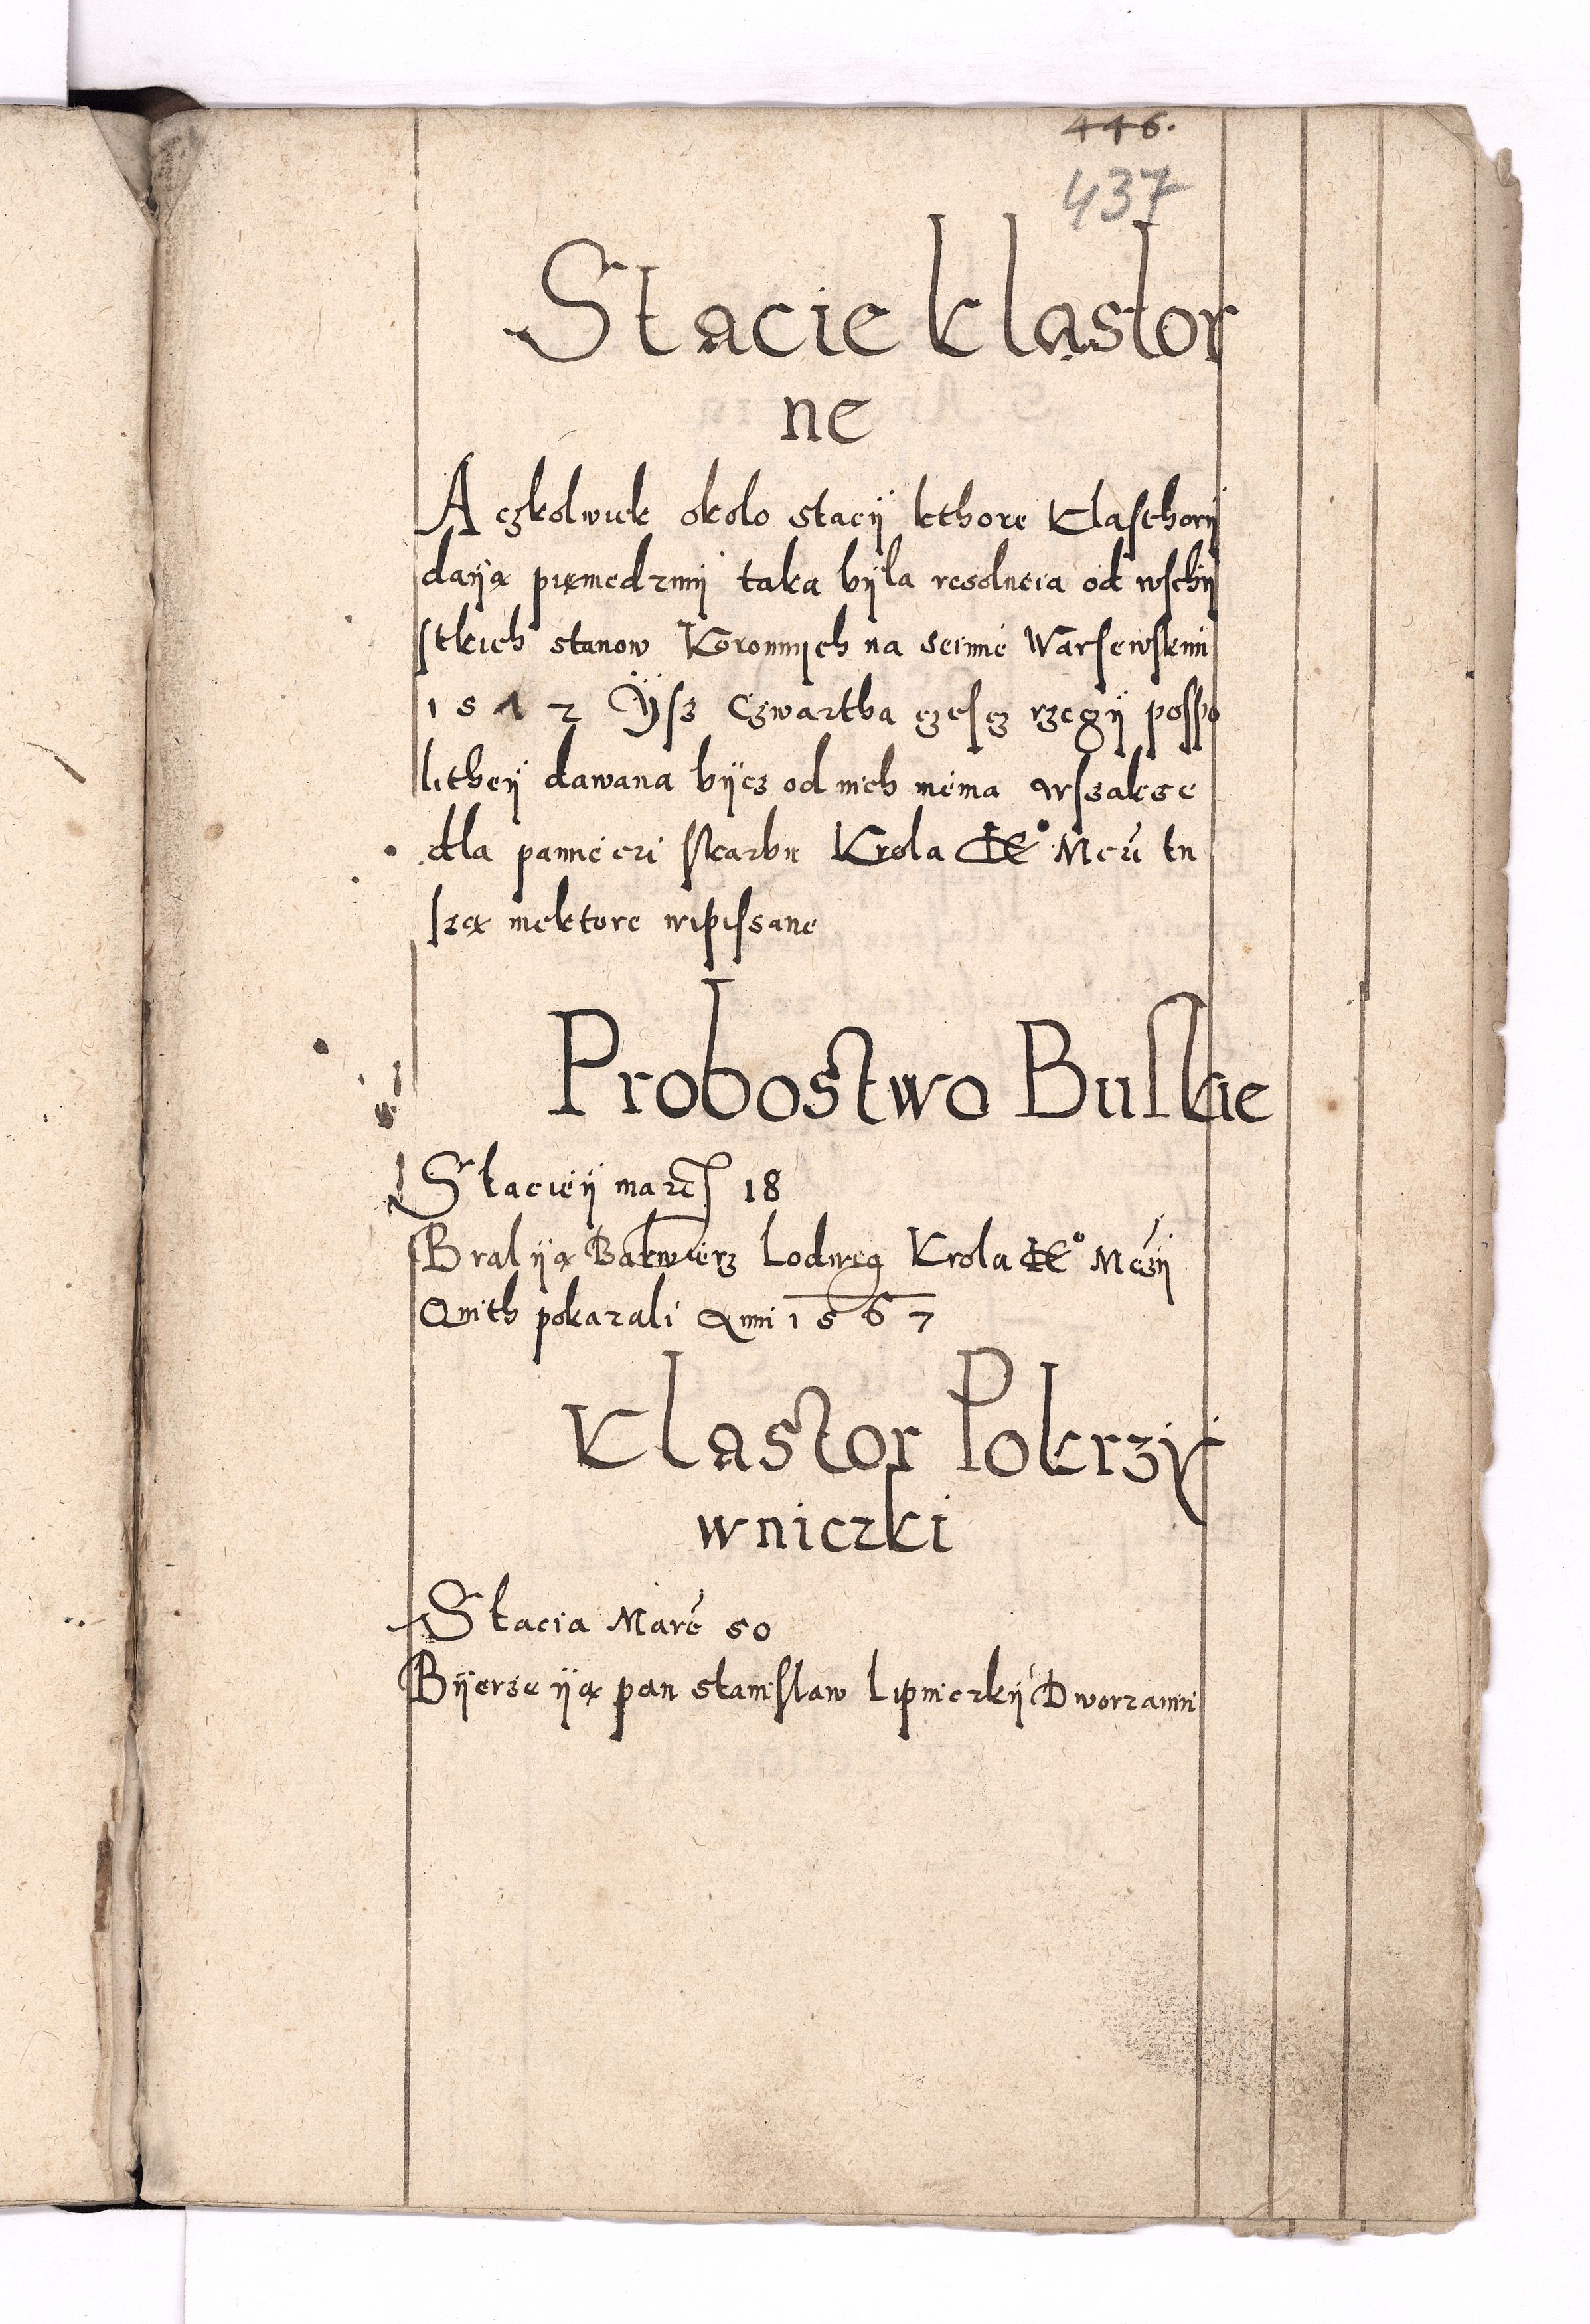 446.
437
Stacie klastor
ne
Aczkolwiek około stacÿ kthore Klasthorÿ
daÿą pieniedzmÿ taka bÿla resolucia od wschÿ
stkich stanow Koronnÿch na seimie Warsewskim
1572 Ÿsz Czwartha częscz rzeczÿ pospo
litheÿ dawana bÿcz od nich niema wszakze
dla pamieczi skarbu Krola Ie° Mczi tu
szą niektore wipissane
Probostwo Buskie
Stacieÿ marc 18
Bral ÿą Balwierz Lodwig Krola Ie° Mczÿ
Quith pokazali Anni 1567
Klastor Pokrzÿ
wniczki
Stacia Marc 50
Bÿerze ÿą pan stanislaw Lipniczkÿ Dworzanin